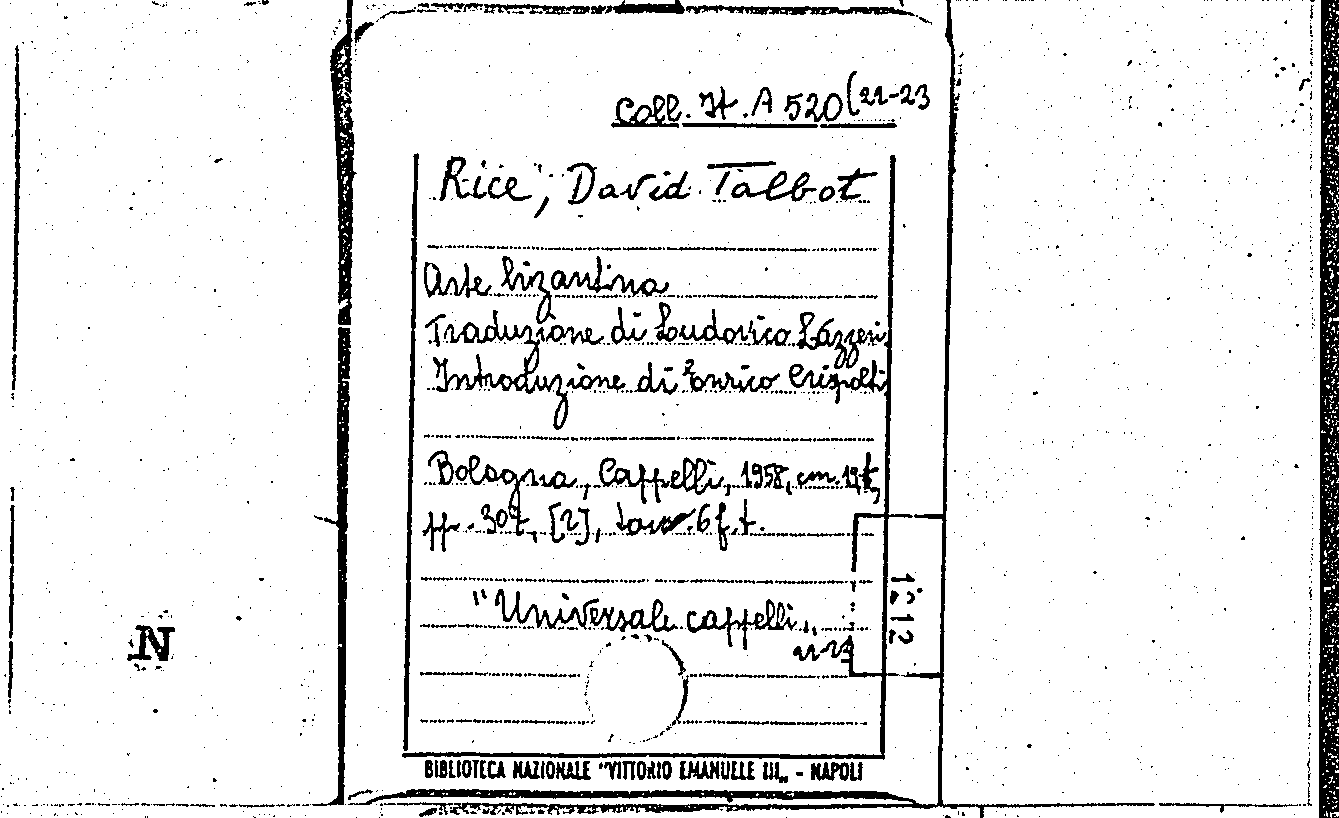 Coll. It. A 520(21-23
Rice, David Talbot
Arte bizantina
Traduzione di Ludovico Lazzeri.
Introduzione di Enrico Crispolti
Bologna, Cappelli, 1958, cm.
pp. 307, [2], tav. 6 f.t.
"Universale cappelli„
21-23
N
BIBLIOTECA NAZIONALE "VITTORIO EMANUELE III„ - NAPOLI